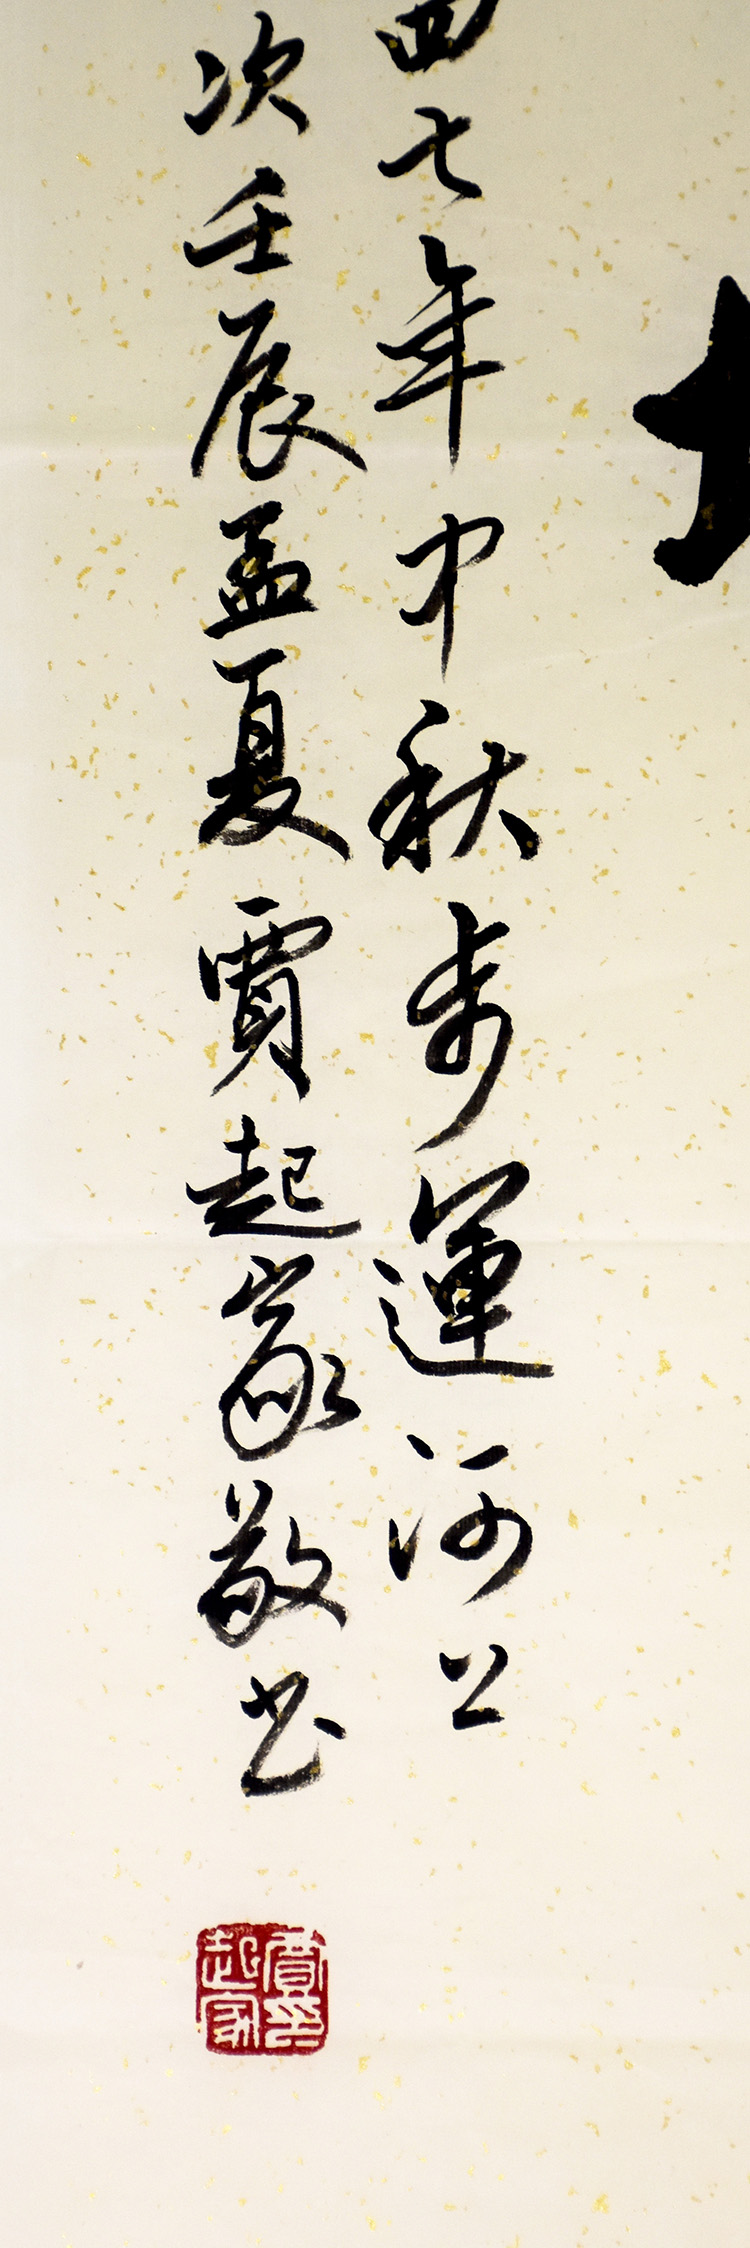 四七年中秋步運河上
次壬辰孟夏賈起家敬書
賈起家印